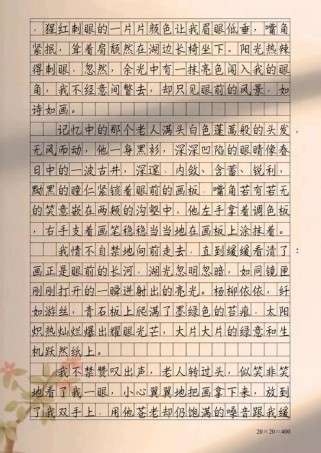 ，猩红刺眼的一片片颜色让我眉眼低垂，嘴角
紧抿，耸着肩颓然在湖边长椅坐下。阳光热辣
得刺眼，忽然，余光中有一抹亮色闯入我的眼
角，我不经意间瞥去，却只见眼前的风景，如
诗如画。
记忆中的那个老人满头白色蓬蒿般的头发，
无风而动，他一身黑衫，深深凹陷的眼睛像春
日中的一波古井，深邃、内敛、含蓄、锐利，
黝黑的瞳仁紧锁着眼前的画板，嘴角若有若无
的笑意嵌在两颊的沟壑中，他左手拿着调色板，
右手支着画笔稳稳当当地在画板上涂抹着。
我情不自禁地向前走去，直到缓缓看清了：
画正是眼前的长河，湖光忽明忽暗，如同镜匣
刚刚打开的一瞬迸射出的亮光。杨柳依依，纤
如游丝，青石板上爬满了墨绿色的苔痕，太阳
炽热灿烂爆出耀眼光芒，大片大片的绿意和生
机跃然纸上。
我不禁赞叹出声，老人转过头，似笑非笑
地看了我一眼，小心翼翼地把画拿下来，放到
了我双手上，用他苍老却仍饱满的嗓音跟我缓
20×20=400